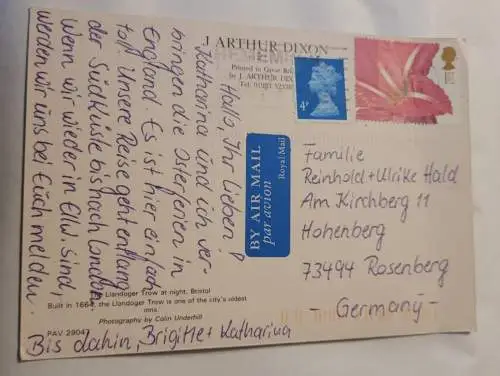 Hallo, Ihr Lieben!
Katharina und ich ver-
bringen die Osterferien in
England. Es ist hier einfach
toll. Unsere Reise geht entlang
der Südküste bis nach London.
Wenn wir wieder in Ellw. sind,
werden wir uns bei Euch melden.
Bis dahin, Brigitte + Katharina
J ARTHUR DIXON
Printed in Great
by J. ARTHUR DIXON
4P
BY AIR MAIL
par avion
Royal Mail
Familie
Reinhold + Ulrike Hald
Am Kirchberg 11
Hohenberg
73494 Rosenberg
Germany
Llandoger Trow at night, Bristol
Built in 1664, the Llandoger Trow is one of the city's oldest
inns.
Photography by Colin Underhill
PAV 29047